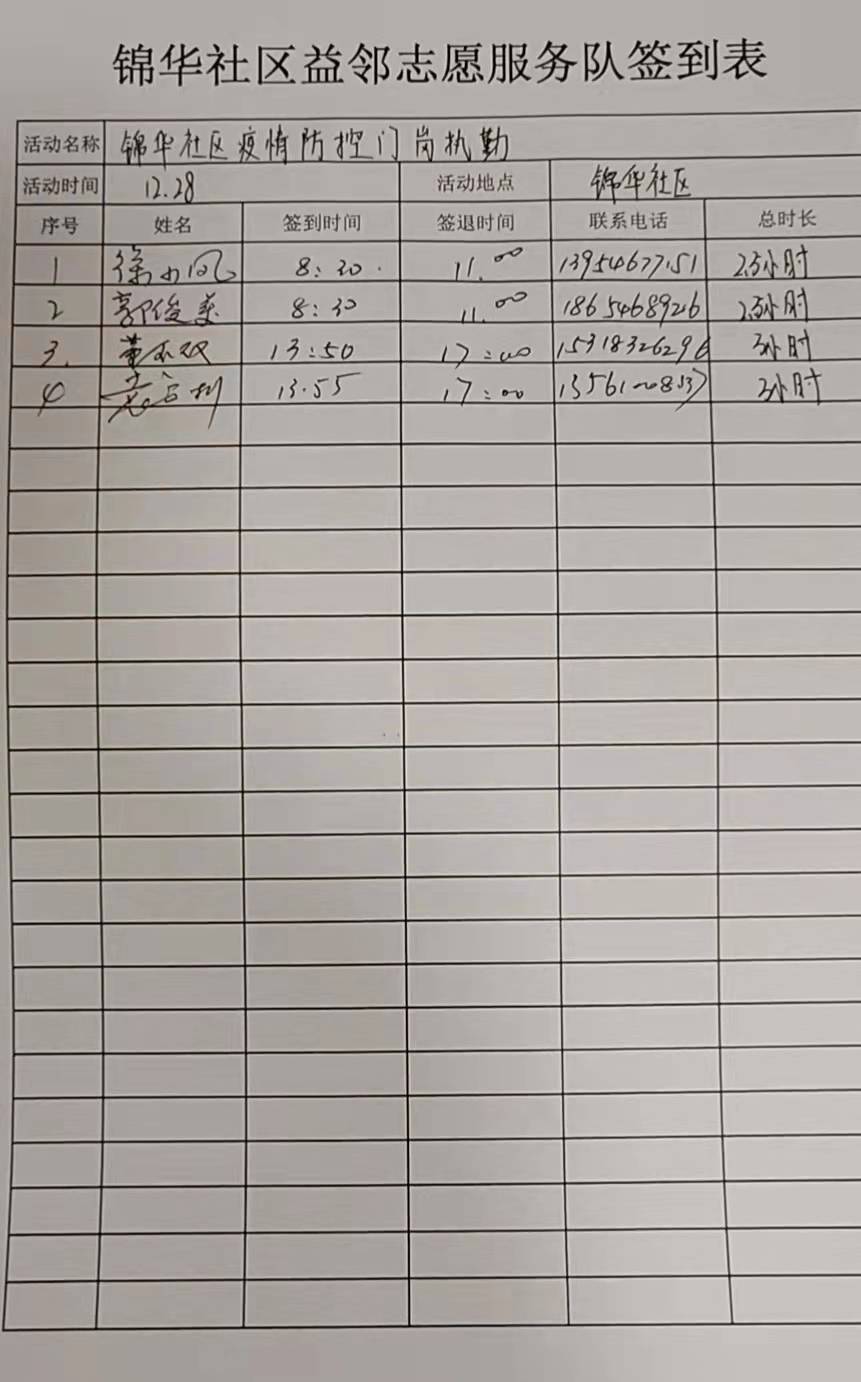 锦华社区益邻志愿服务队签到表
活动名称 锦华社区疫情防控门岗执勤
活动时间 12.28 活动地点 锦华社区
序号 姓名 签到时间 签退时间 联系电话 总时长
1 徐小凤 8:30 11.00 13954677151 2.5小时
2 郭俊英 8:30 11.00 18654689216 2.5小时
3. 董玉双 13:50 17:00 15318326296 3小时
4 13.55 17:00 13561008537 3小时